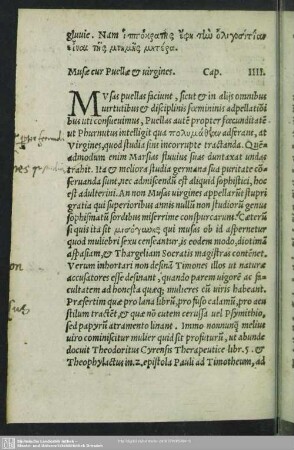 gluuie. Nam ἱπποκρατης ἔφη τὴν ὀλιγοσιτίαν
εἶναι τῆς μνήμης μητέρα.
Musæ cur Puellæ & virgines. Cap. IIII.
MVsas puellas faciunt, sicut & in alijs omnibus
uirtutibus & disciplinis fœmininis adpellatiōi
bus uti consueuimus, Puellas autē propter fœcunditatē
ut Phurnutus intelligit qua πολυμάθειαν adferant, at
Virgines, quod studia sint incorrupte tractanda. Quē
admodum enim Marsias fluuius suas duntaxat undas
trahit. Ita & meliora studia germana sua puritate cō
seruanda sunt, nec admiscendū est aliquid sophistici, hoc
est adulterini. An non Musas virgines appellarūt stupri
gratia qui superioribus annis nullū non studiorū genus
sophismatū sordibus miserrime conspurcarunt. Cæterū
si quis ita sit μισόγυνος qui musas ob id aspernetur
quod muliebri sexu censeantur, is eodem modo, diotimā
aspasiam, & Thargeliam Socratis magistras contēnet.
Verum inhortari non desinā Timones illos ac naturæ
accusatores esse desinant, quando parem uigorē ac fa
cultatem ad honesta quæq; mulieres cū uiris habeant.
Præsertim quæ pro lana librū, pro fuso calamū, pro acu
stilum tractēt, & quæ nō cutem cerussa uel Psymithio,
sed papyrū atramento linant. Immo nonnunq̄ melius
uiro cominiscitur mulier quid sit profuturū, ut abunde
docuit Theodoritus Cyrensis Therapeutice libr. 5. &
Theophylactus in.2. epistola Pauli ad Timotheum, ad